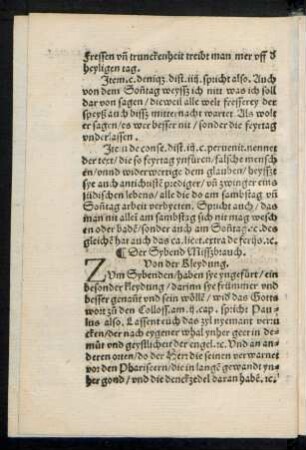 Fressen vñ trunckenheit treibt man mer vff d̕
heyligen tag.
Item.c.deniqz.dist.iiij.spricht also. Auch
von dem Soñtag weyssz ich nit was ich soll
dar von sagen / dieweil alle welt fresserey der
speysz auch bissz mitternacht wartet. Als wolt
er sagen / es wer besser nit / sonder die feyrtag
vnderlassen.
Itē ū de conse.dist.iij.c.peruenit.nennet
der text / die so feyrtag ynfüren / falsche mensch
en / vnnd widerwertige dem glauben / heyszt
sye auch antichristē prediger / vñ zwinger eins
iüdischen lebens / alle die do am sambstag vñ
Soñtag arbeit verbyeten. Spricht auch / das
man nit alleī am sambstag sich nit mag wesch
en oder badē / sonder auch am Soñtag.⁊c.des
gleichē hat auch das ca.licet.extra de ferijs.⁊c.
¶ Der Sybend Misszbrauch.
Von der Kleydung.
ZVm Sybenden / haben sye yngefürt / ein
besonder kleydung / darinn sye frümmer vnd
besser genañt vnd sein wöllē / wid das Gotts
wort zů den Colloss.am.ij.cap. spricht Pau
lus also. Lassent euch das zyl nyemant verru
cken / der nach eygener whal ynher geet in de
müt vnd geystlicheit der engel.⁊c. Vnd an an
deren orten / do der Herr die seinen verwarnet
vor den Phariseern / die in langē gewandt yn
her gond / vnd die denckzedel daran habē.⁊c.